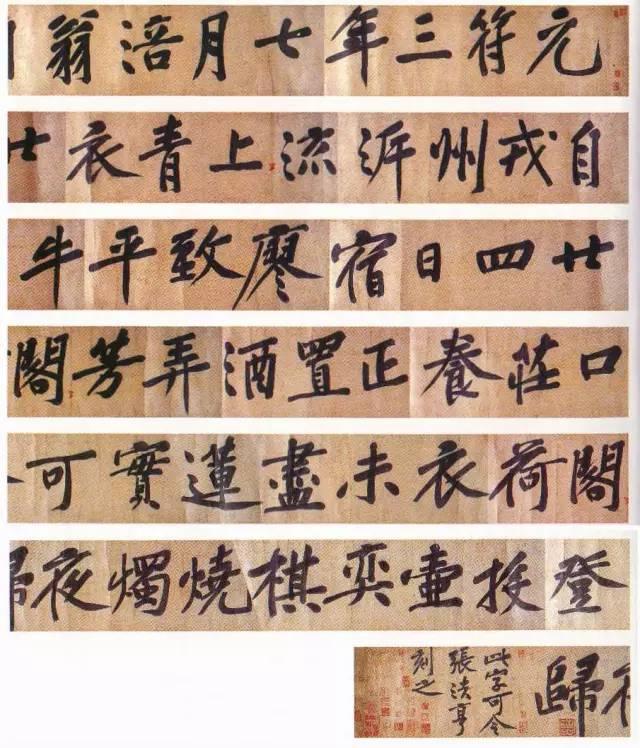 元符三年七月涪翁
自戎州泝流上青衣廿
廿四日宿廖致平牛
口莊養正置酒弄芳閣
閣荷衣未盡蓮實可
登投壺奕棋燒燭夜歸
歸
此字可令
張法亨
刻之